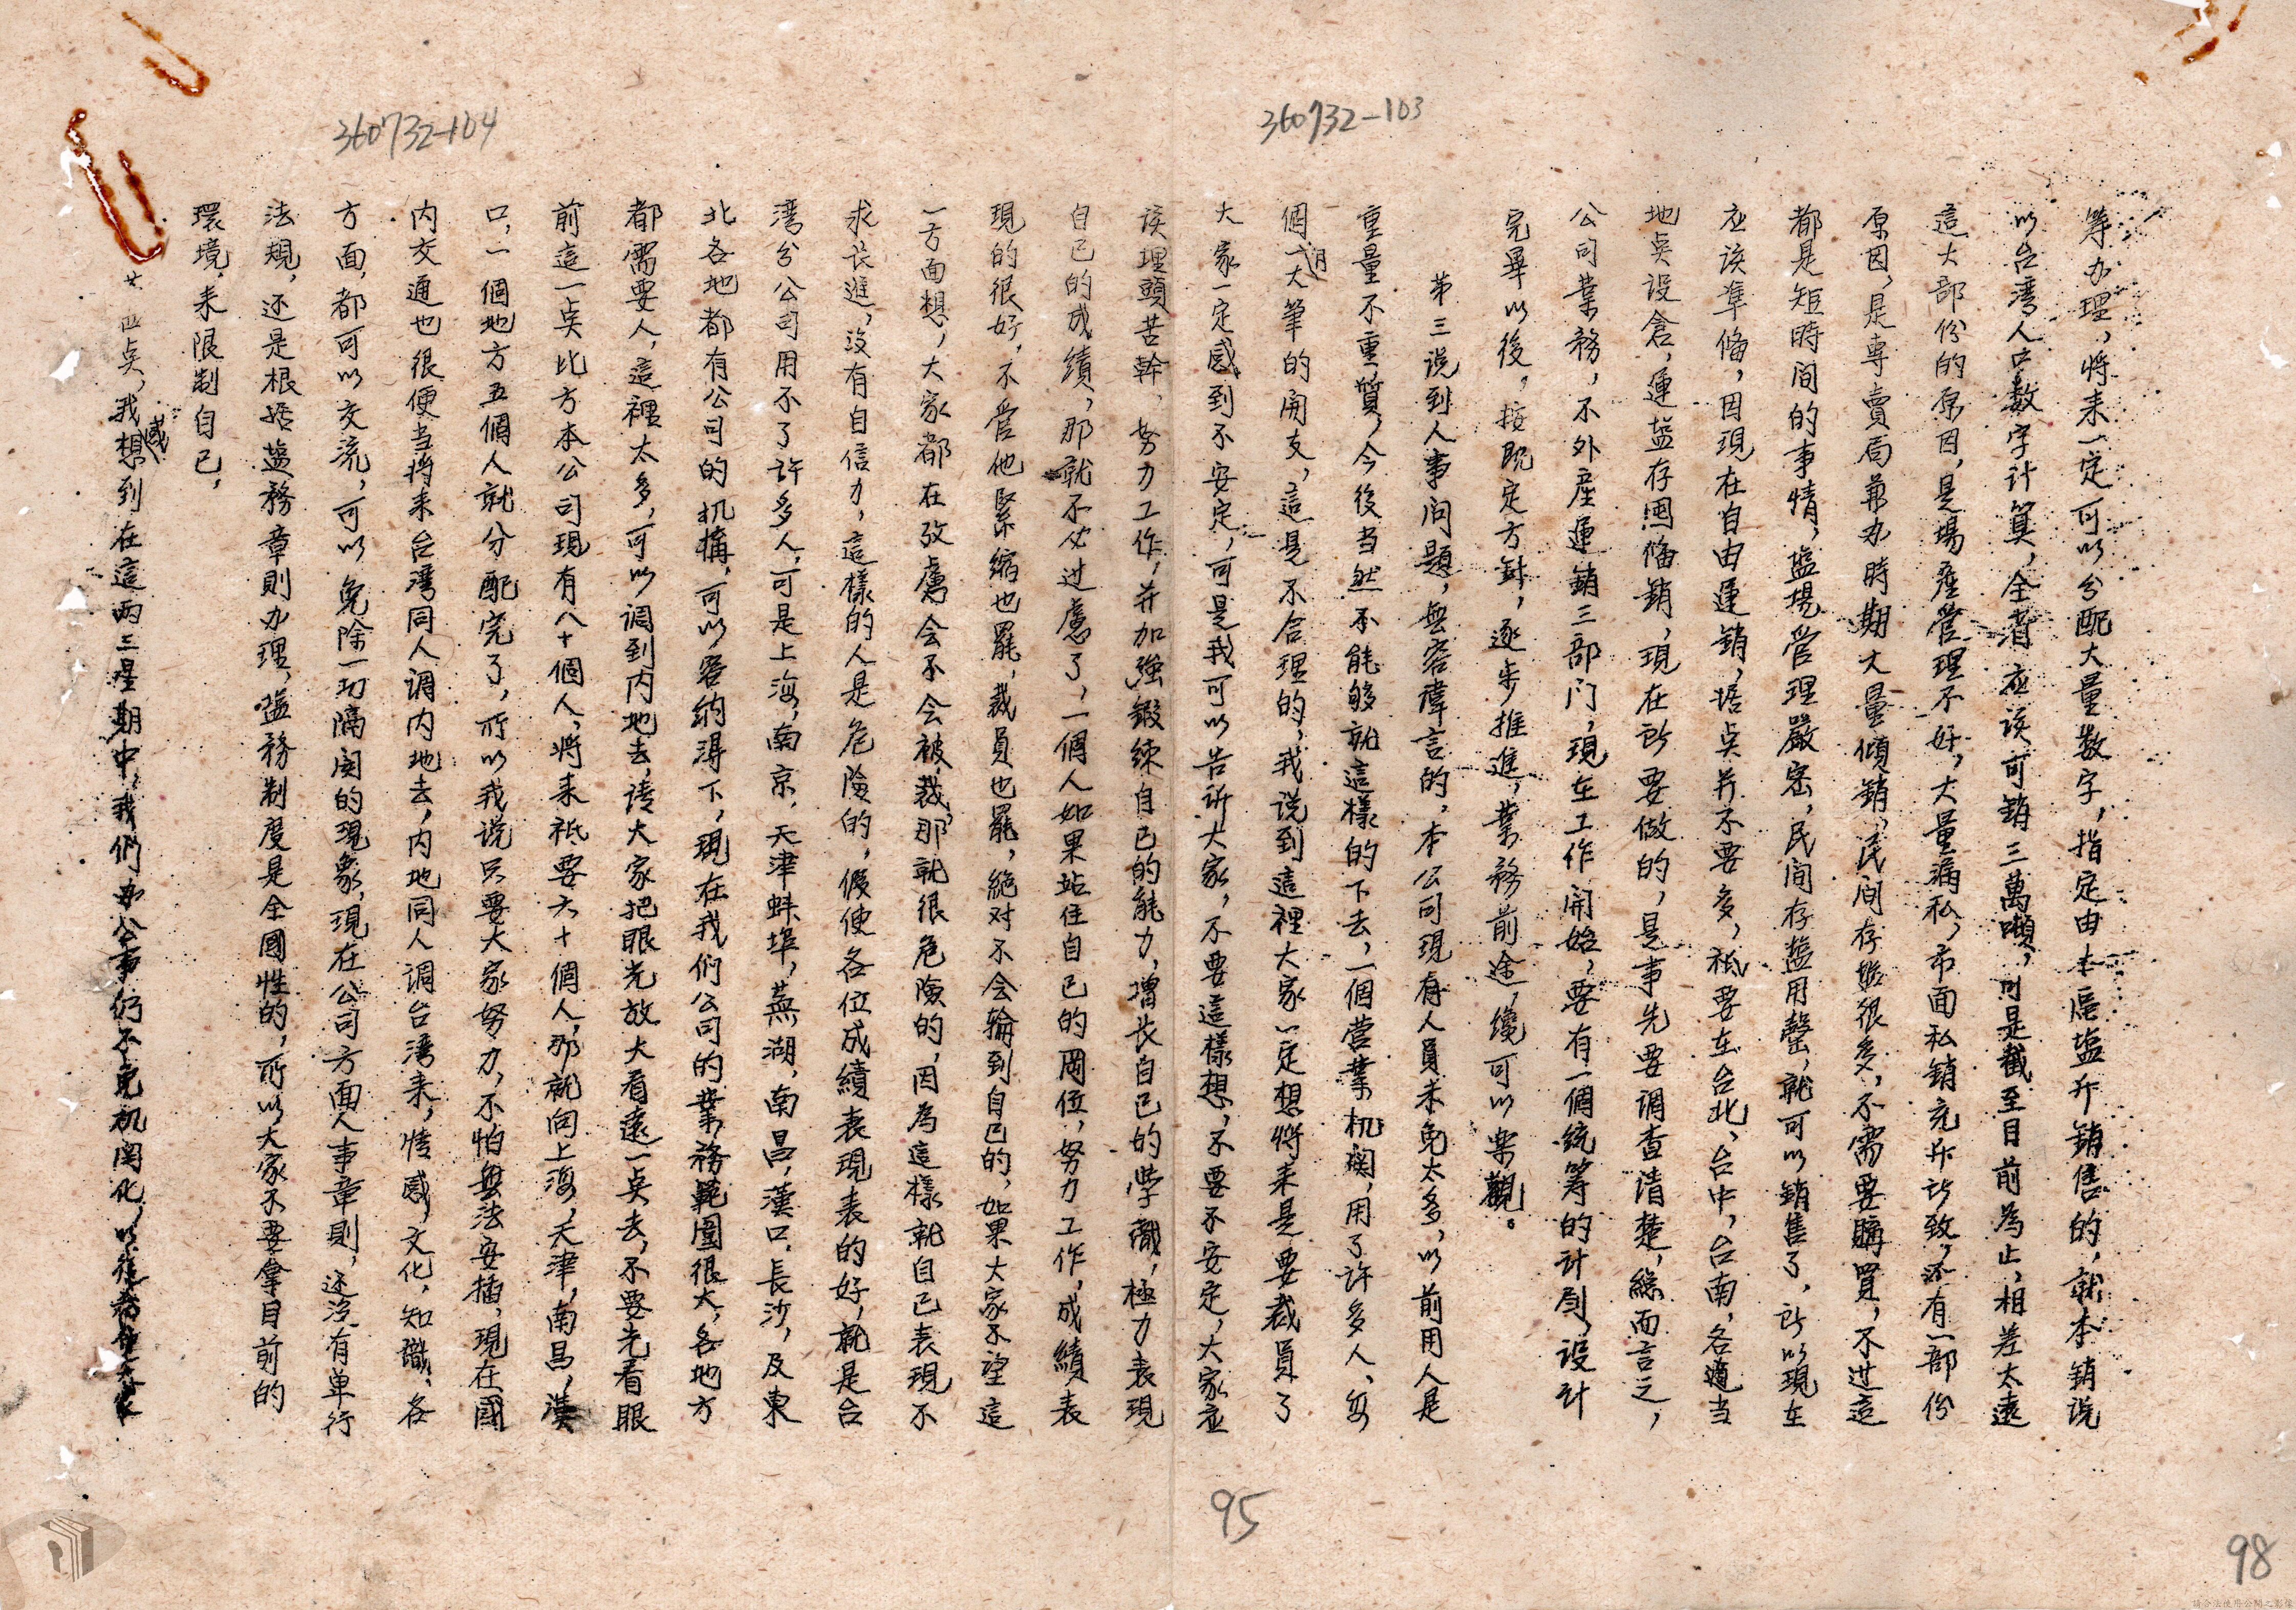 360732-103
筹办理，将来一定可以分配大量数字，指定由本區盐斤銷售的，就本銷说
以台湾人口数字计算，全者应该可銷三萬噸，可是截至目前為止，相差太遠
這大部份的原因，是場産管理不好，大量漏私，市面私銷充斥所致，还有一部份
原因，是專賣局兼办時期大量傾銷，民间存塩很多，不需要購買，不过這
都是短時间的事情，塩場管理嚴密，民间存塩用罄，就可以銷售了，所以現在
应该準俻，因現在自由運銷，据奌并不要多，祇要在台北、台中，台南，各適当
地奌設倉，運盐存囤俻銷，現在所要做的，是事先要调查清楚，總而言之，
公司業務，不外産運銷三部门，現在工作開始，要有一個统筹的计劃，设计
完畢以後，按既定方針，逐步推進，業務前途，纔可以樂觀。
苐三说到人事问題，無容諱言的，本公司現有人員未免太多，以前用人是
重量不重質，今後当然不能够就這樣的下去，一個营業机関，用了许多人、每
個月一大筆的開支，這是不合理的，我说到這裡大家一定想将来是要裁員了
大家一定感到不安定，可是我可以告訴大家，不要這樣想，不要不安定，大家应
该埋頭苦幹，努力工作，并加強鍛練自己的能力，增长自己的學識，極力表現
自己的成績，那就不必过慮了，一個人如果站住自己的岡位，努力工作，成績表
現的很好，不管他緊縮也罷，裁員也罷，絕对不会輪到自己的，如果大家不望這
一方面想，大家都在攷慮会不会被裁，那就很危險的，因為這樣就自己表現不
求长進，没有自信力，這樣的人是危險的，假使各位成績表現表的好，就是台
湾分公司用不了許多人，可是上海，南京，天津蚌埠，蕪湖，南昌，漢口，長沙，及東
北各地都有公司的机搆，可以容纳得下，現在我们公司的業務範圍很大，各地方
都需要人，這裡太多，可以调到内地去，请大家把眼光放大看遠一奌去，不要先看眼
前這一奌比方本公司現有八十個人，将来祇要六十個人，那就向上海，天津，南昌，漢
口，一個地方五個人就分配完了，所以我说只要大家努力，不怕無法安插，現在國
内交通也很便当将来台湾同人调内地去，内地同人调台湾来，情感，文化，知識、各
方面，都可以交流，可以免除一切隔閡的現象，現在公司方面人事章則，还没有单行
法規，还是根据盐務章則办理，盐務制度是全國性的，所以大家不要拿目前的
環境，来限制自己，
四奌，我感想到在這两三星期中，我們办公事仍不免机関化，以往
360732-104
95
98